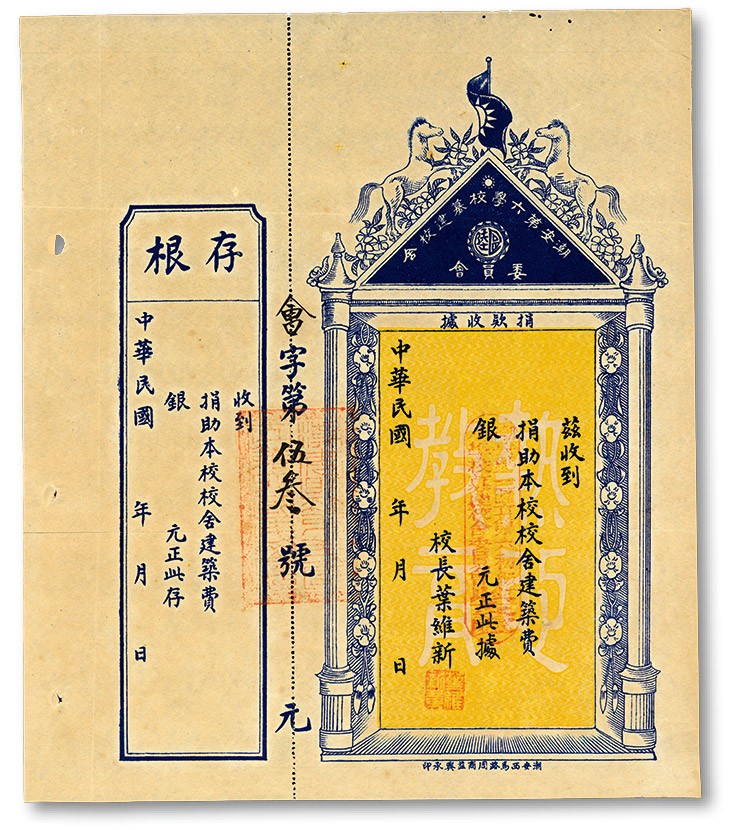 潮安第六學校募建校舍
委員會
捐欵收據
茲收到
捐助本校校舍建築費
銀 元正此據
校長葉維新
中華民國 年 月 日
潮安西馬路周商益興承印
會字第伍叁號 元
存根
收到
捐助本校校舍建築費
銀 元正此存
中華民國 年 月 日